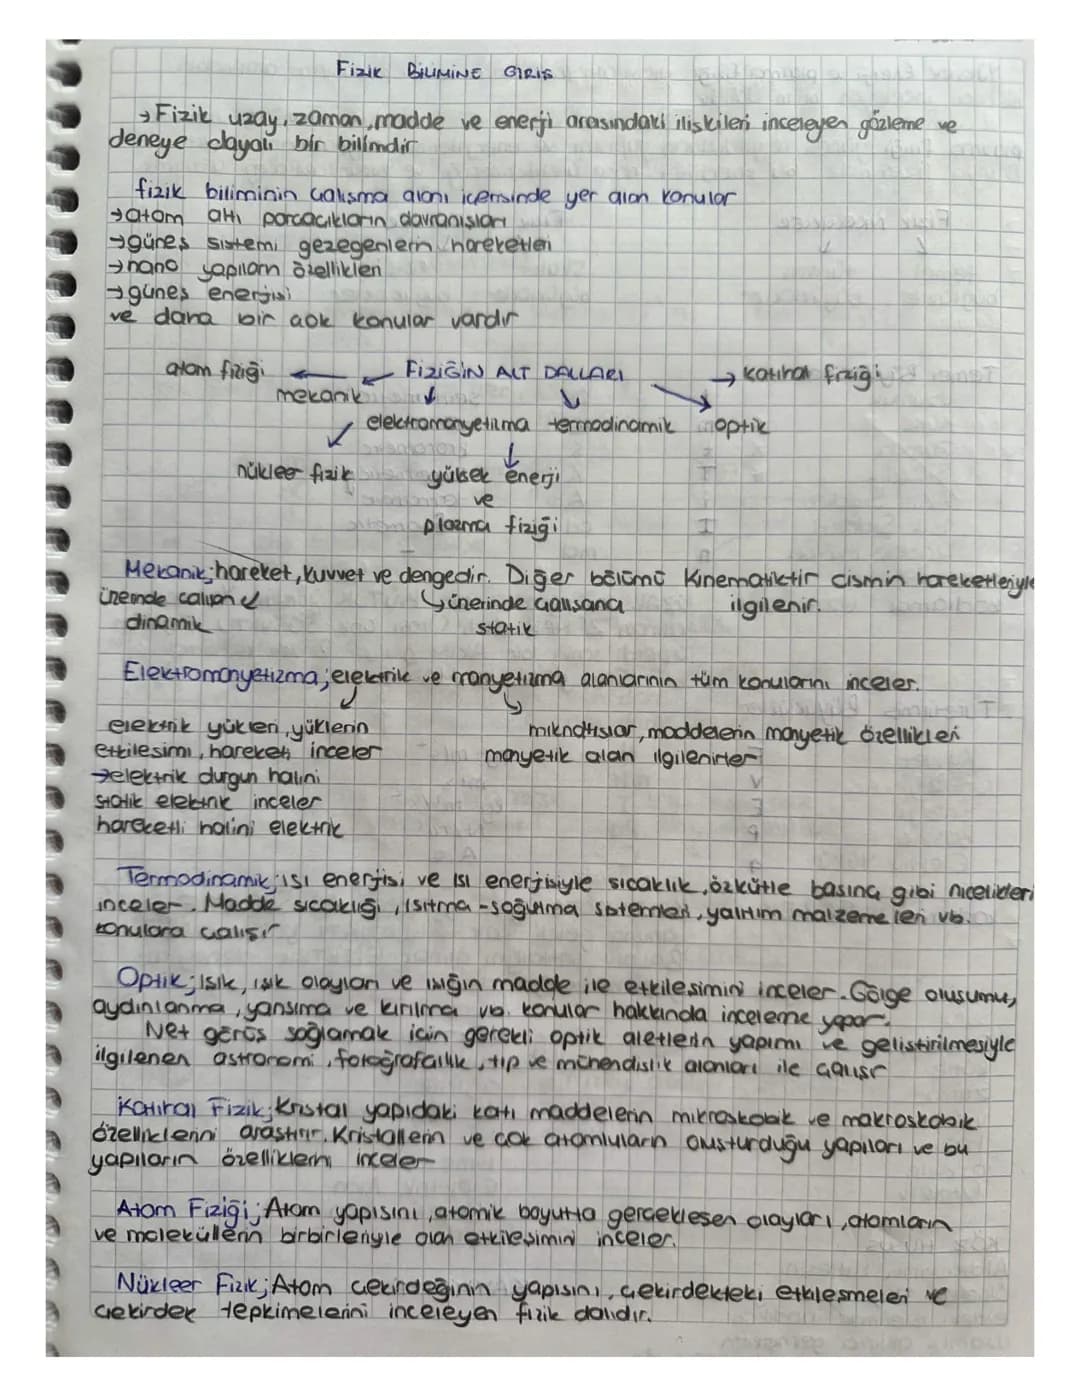 FiziK BiLiMiNE GİRİŞ
→Fizik uzay, zaman, madde ve enerji arasındaki ilişkileri inceleyen gözleme ve
deneye dayalı bir bilimdir
fizik biliminin çalışma alanı içerisinde yer alan konular
→atom altı parçacıkların davranışları
→güneş sistemi gezegenlerin hareketleri
→nano yapıların özellikleri
→güneş enerjisi
ve daha bir çok konular vardır
atom fiziği ← FİZİĞİN ALT DALLARI → katıhal fiziği
mekanik
elektromanyetizma termodinamik optik
nükleer fizik yüksek enerji
ve
plazma fiziği
Mekanik; hareket, kuvvet ve dengedir. Diğer bölümü Kinematiktir cismin hareketleriyle
üzerinde çalışan üzerinde çalışana ilgilenir.
dinamik statik
Elektromanyetizma; elektrik ve manyetizma alanlarının tüm konularını inceler.
elektrik yükleri, yüklerin mıknatıslar, maddelerin manyetik özellikleri
etkileşimi, hareketi inceler manyetik alan ilgilenirler
→elektrik durgun halini
statik elektrik inceler
hareketli halini elektrik
Termodinamik; ısı enerjisi ve ısı enerjisiyle sıcaklık, özkütle basınç gibi nicelikleri
inceler. Madde sıcaklığı, ısıtma-soğutma sistemleri, yalıtım malzemeleri vb.
konulara çalışır
Optik; Işık, ışık olayları ve ışığın madde ile etkileşimini inceler. Gölge oluşumu,
aydınlanma, yansıma ve kırılma vb. konular hakkında inceleme yapar.
Net görüş sağlamak için gerekli optik aletlerin yapımı ve geliştirilmesiyle
ilgilenen astronomi, fotoğrafçılık, tıp ve mühendislik alanları ile çalışır
Katıhal Fizik; Kristal yapıdaki katı maddelerin mikroskobik ve makroskobik
özelliklerini araştırır. Kristallerin ve çok atomluların oluşturduğu yapıları ve bu
yapıların özelliklerini inceler
Atom Fiziği; Atom yapısını, atomik boyutta gerçekleşen olayları, atomların
ve moleküllerin birbirleriyle olan etkileşimini inceler.
Nükleer Fizik; Atom çekirdeğinin yapısını, çekirdekteki etkileşmeleri ve
çekirdek tepkimelerini inceleyen fizik dalıdır.